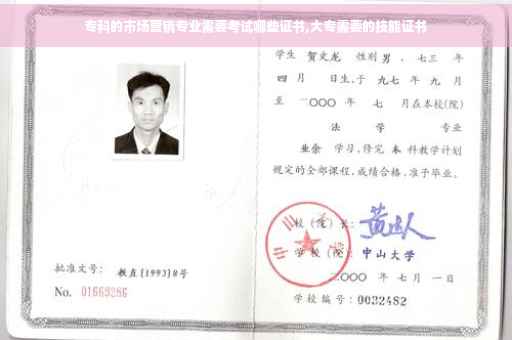 专科的市场营销专业需要考试哪些证书,大专需要的技能证书
学生 贺文龙 性别 男 ，七三 年
四 月 日生,于 九七 年 九 月
至 二〇〇〇 年 七 月在本校(院)
法 学 专业
业余 学习,修完 本 科教学计划
规定的全部课程,成绩合格,准予毕业。
校 (院) 长:
学 校 (院): 中山大学
二〇〇〇 年 七 月 一 日
学校编号: 0032482
批准文号: 教直[1993]8号
No. 01669286